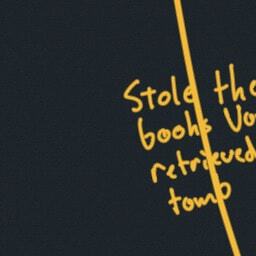 Stole the
books Vo
retrieved
tomo